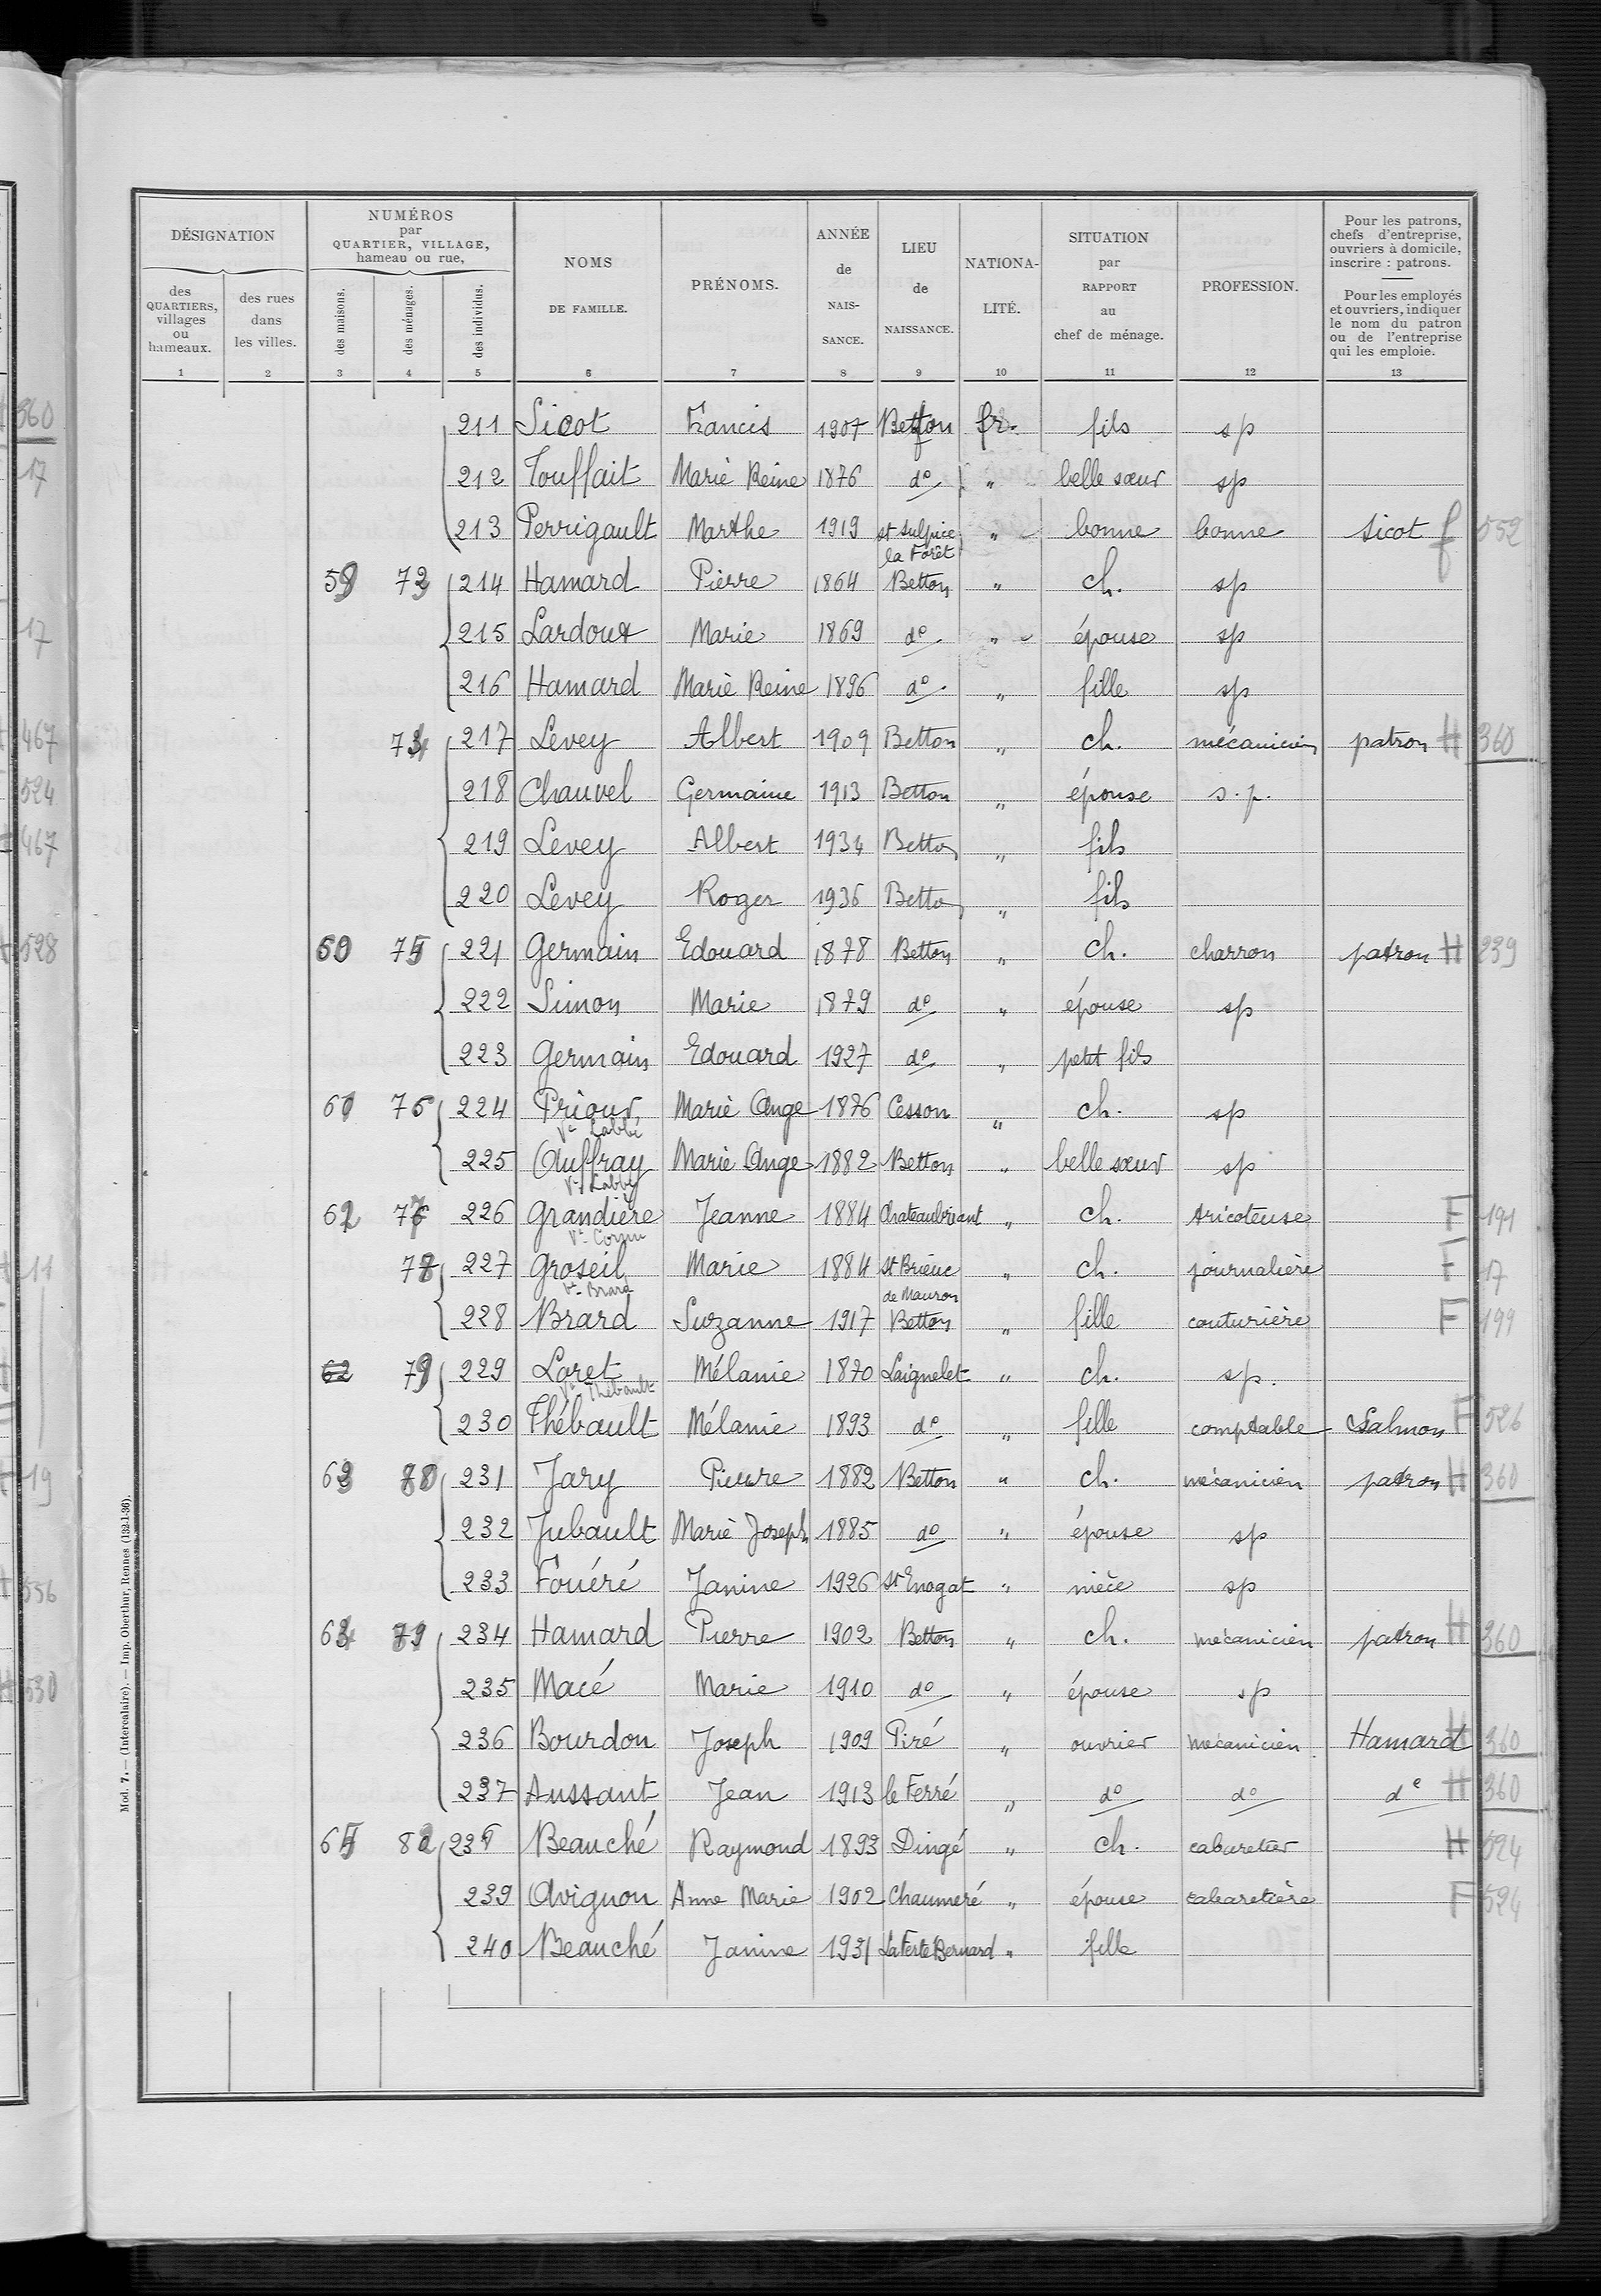 DÉSIGNATION
des QUARTIERS, villages ou hameaux.
des rues dans les villes.
NUMÉROS par QUARTIER, VILLAGE, hameau ou rue,
des maisons.
des ménages.
des individus.
NOMS DE FAMILLE.
PRÉNOMS.
ANNÉE de NAISSANCE.
LIEU de NAISSANCE.
NATIONALITÉ.
SITUATION par RAPPORT au chef de ménage.
PROFESSION.
Pour les patrons, chefs d'entreprise, ouvriers à domicile, inscrire : patrons.
Pour les employés et ouvriers, indiquer le nom du patron ou de l'entreprise qui les emploie.
1 2 3 4 5 6 7 8 9 10 11 12 13
211 Sicot Francis 1907 Betton fr. fils sp
212 Touffait Marie Reine 1876 do " belle sœur sp
213 Perrigault Marthe 1919 st Sulpice la Forêt " bonne bonne Sicot f 552
59 72 214 Hamard Pierre 1864 Betton " ch. sp
215 Lardoux Marie 1869 do " épouse sp
216 Hamard Marie Reine 1896 do " fille sp
74 217 Levey Albert 1909 Betton " ch. mécanicien patron H 360
218 Chauvel Germaine 1913 Betton " épouse s.p.
219 Levey Albert 1934 Betton " fils
220 Levey Roger 1936 Betton " fils
60 75 221 Germain Edouard 1878 Betton " ch. charron patron H 239
222 Simon Marie 1879 do " épouse sp
223 Germain Edouard 1927 do " petit fils
61 76 224 Priour Marie Ange 1876 Cesson " ch. sp
Ve Labbé
225 Auffray Marie Ange 1882 Betton " belle sœur sp
Ve Labbé
62 77 226 Grandière Jeanne 1884 Chateaubriant " ch. tricoteuse F 191
78 227 Groseil Marie 1884 St Brieuc de Mauron " ch. journalière F 17
Ve Brard
228 Brard Suzanne 1917 Betton " fille couturière F 199
62 79 229 Loret Mélanie 1870 Laignelet " ch. sp.
Ve Thébault
230 Thébault Mélanie 1893 do " fille comptable Salmon F 526
63 80 231 Jary Pierre 1882 Betton " ch. mécanicien patron H 360
232 Jubault Marie Joseph 1885 do " épouse sp
233 Fouéré Janine 1926 St Enogat " nièce sp
64 79 234 Hamard Pierre 1902 Betton " ch. mécanicien patron H 360
235 Macé Marie 1910 do " épouse sp
236 Bourdon Joseph 1909 Piré " ouvrier mécanicien Hamard H 360
237 Aussant Jean 1913 le Ferré " do do do H 360
65 82 238 Beauché Raymond 1893 Dingé " ch. cabaretier H 524
239 Avignon Anne Marie 1902 Chaumeré " épouse cabaretière F 524
240 Beauché Janine 1931 La Ferté Bernard " fille
Mod. 7. — (Intercalaire). — Imp. Oberthur, Rennes (132-1-36).
360
17
17
467
524
467
528
11
19
556
530